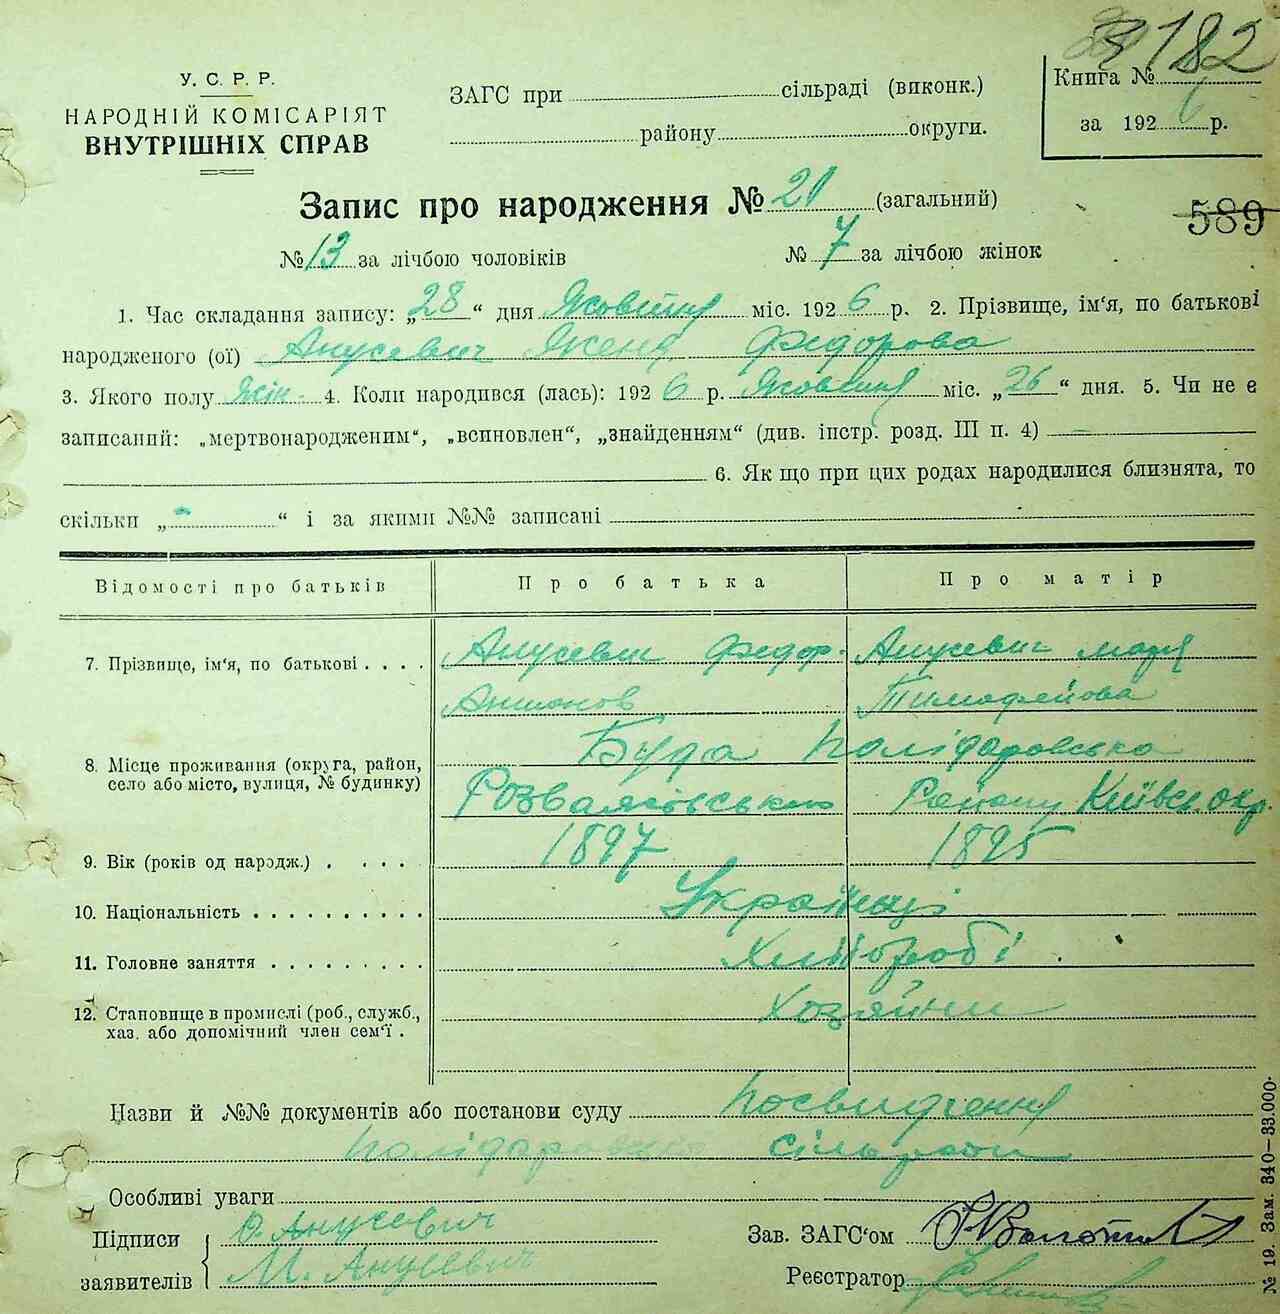 182
У. С. Р. Р.
НАРОДНІЙ КОМІСАРІЯТ
ВНУТРІШНІХ СПРАВ
ЗАГС при сільраді (виконк.)
району округи.
Книга №
за 1926 р.
Запис про народження № 20 (загальний)
589
№ 13 за лічбою чоловіків № 7 за лічбою жінок
1. Час складання запису: „28“ дня Жовтня міс. 1926 р. 2. Прізвище, ім‘я, по батькові
народженого (ої) Анусевич Женя Федорова
3. Якого полу жін. 4. Коли народився (лась): 1926 р. Жовтня міс. „26“ дня. 5. Чи не є
записаний: „мертвонародженим“, „всиновлен“, „знайденням“ (див. інстр. розд. III п. 4)
6. Як що при цих родах народилися близнята, то
скільки „-“ і за якими №№ записані
Відомості про батьків Про батька Про матір
7. Прізвище, ім‘я, по батькові . . . . Анусевич Федор. Анусевич Марія
Антонов Тимофейова
8. Місце проживання (округа, район, село або місто, вулиця, № будинку) Буда Поліфаровська
Розважівського Району Київськ. окр.
9. Вік (років од народж.) . . . . . 1897 1895
10. Національність . . . . . . . . . . Українці
11. Головне заняття . . . . . . . . . Хлібороби
12. Становище в промислі (роб., служб., хаз. або допомічний член сем‘ї . Хозяйни
Назви й №№ документів або постанови суду Посвидчення
Поліфаровської сільради
Особливі уваги
Підписи Ф. Анусевич
заявителів М. Анусевич
Зав. ЗАГС‘ом
Реєстратор
№ 19. Зам. 340—33.000.